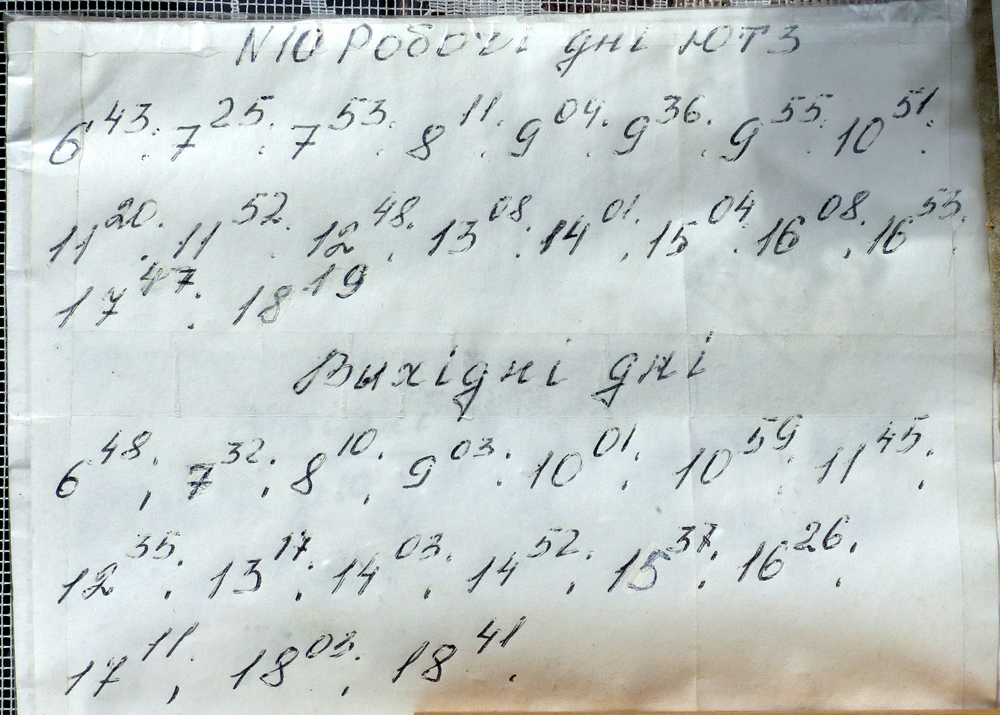 N10 Робочі дні ЮТЗ
6 43. 7 25. 7 53. 8 11. 9 04. 9 36. 9 55. 10 51.
11 20. 11 52. 12 48. 13 08. 14 01. 15 04. 16 08. 16 53.
17 47. 18 19
Вихідні дні
6 48, 7 32, 8 10, 9 03. 10 01, 10 59, 11 45,
12 35, 13 17, 14 03, 14 52, 15 37, 16 26,
17 11, 18 03, 18 41.